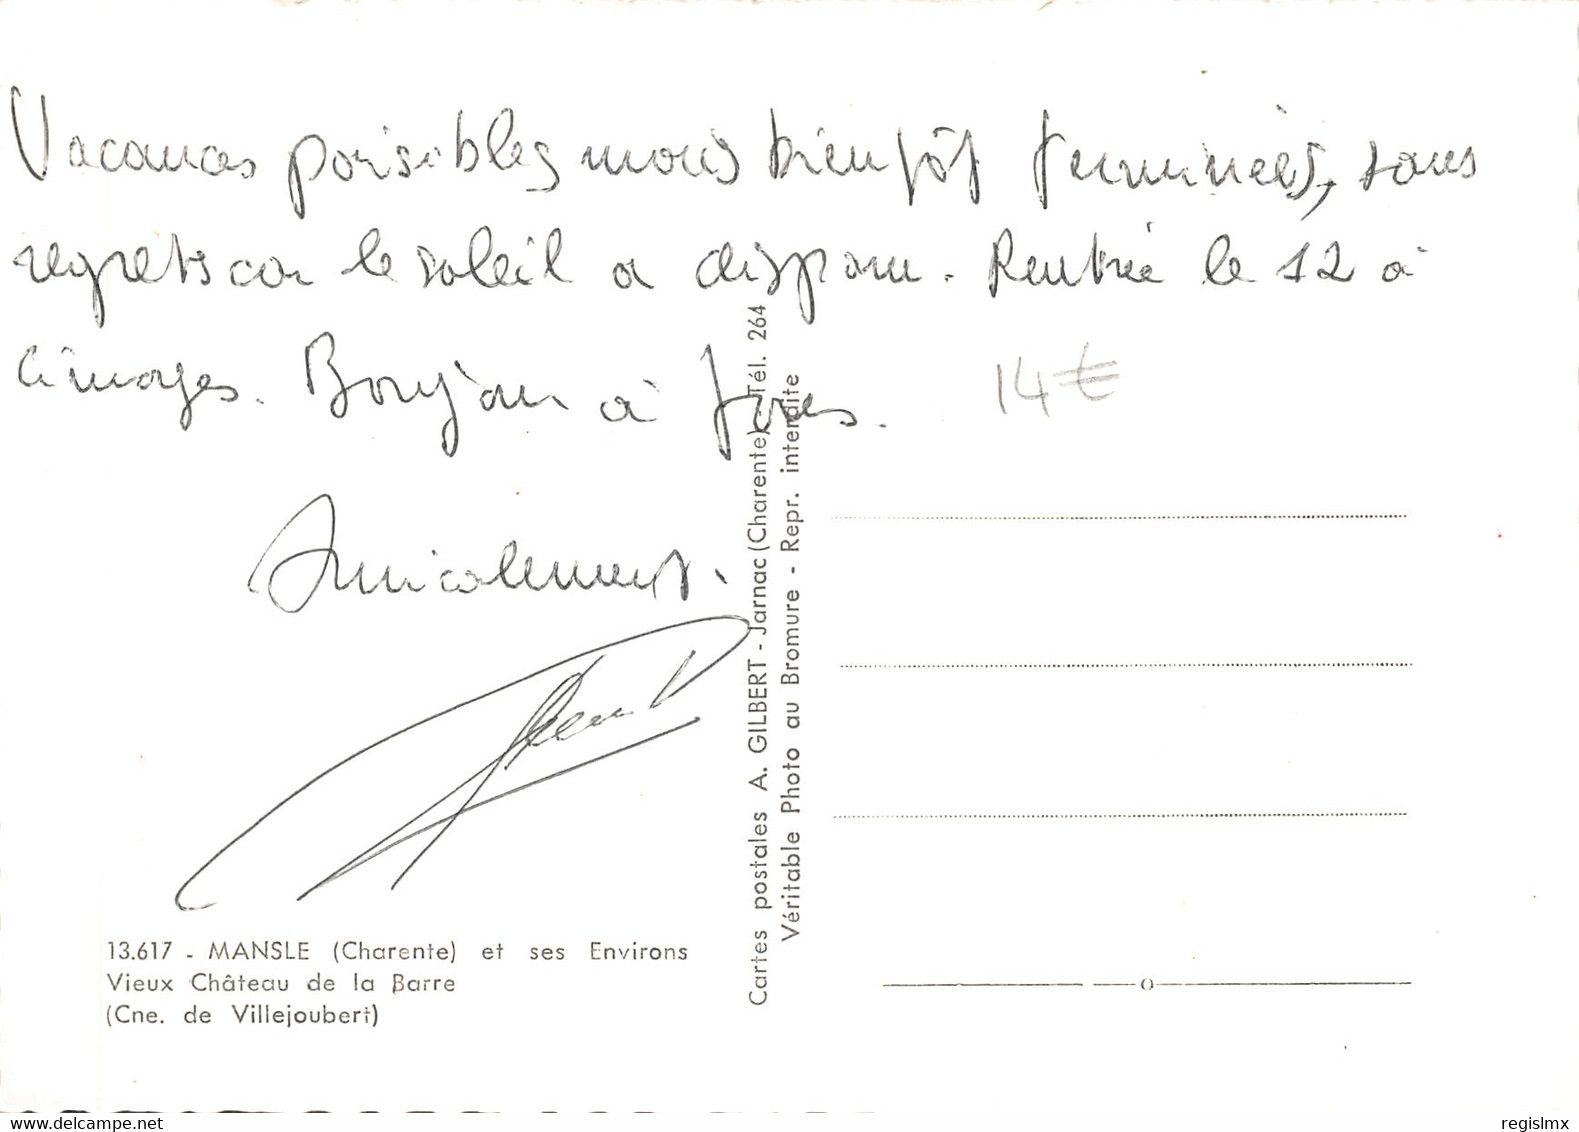 Vacances paisibles mais bientôt terminées, sans
regrets car le soleil a disparu. Rentrée le 12 à
Limoges. Bonjour à tous.
14 €
Amicalement.
13.617 - MANSLE (Charente) et ses Environs
Vieux Château de la Barre
(Cne. de Villejoubert)
Cartes postales A. GILBERT - Jarnac (Charente) Tél. 264
Véritable Photo au Bromure - Repr. interdite
delcampe.net
regislmx